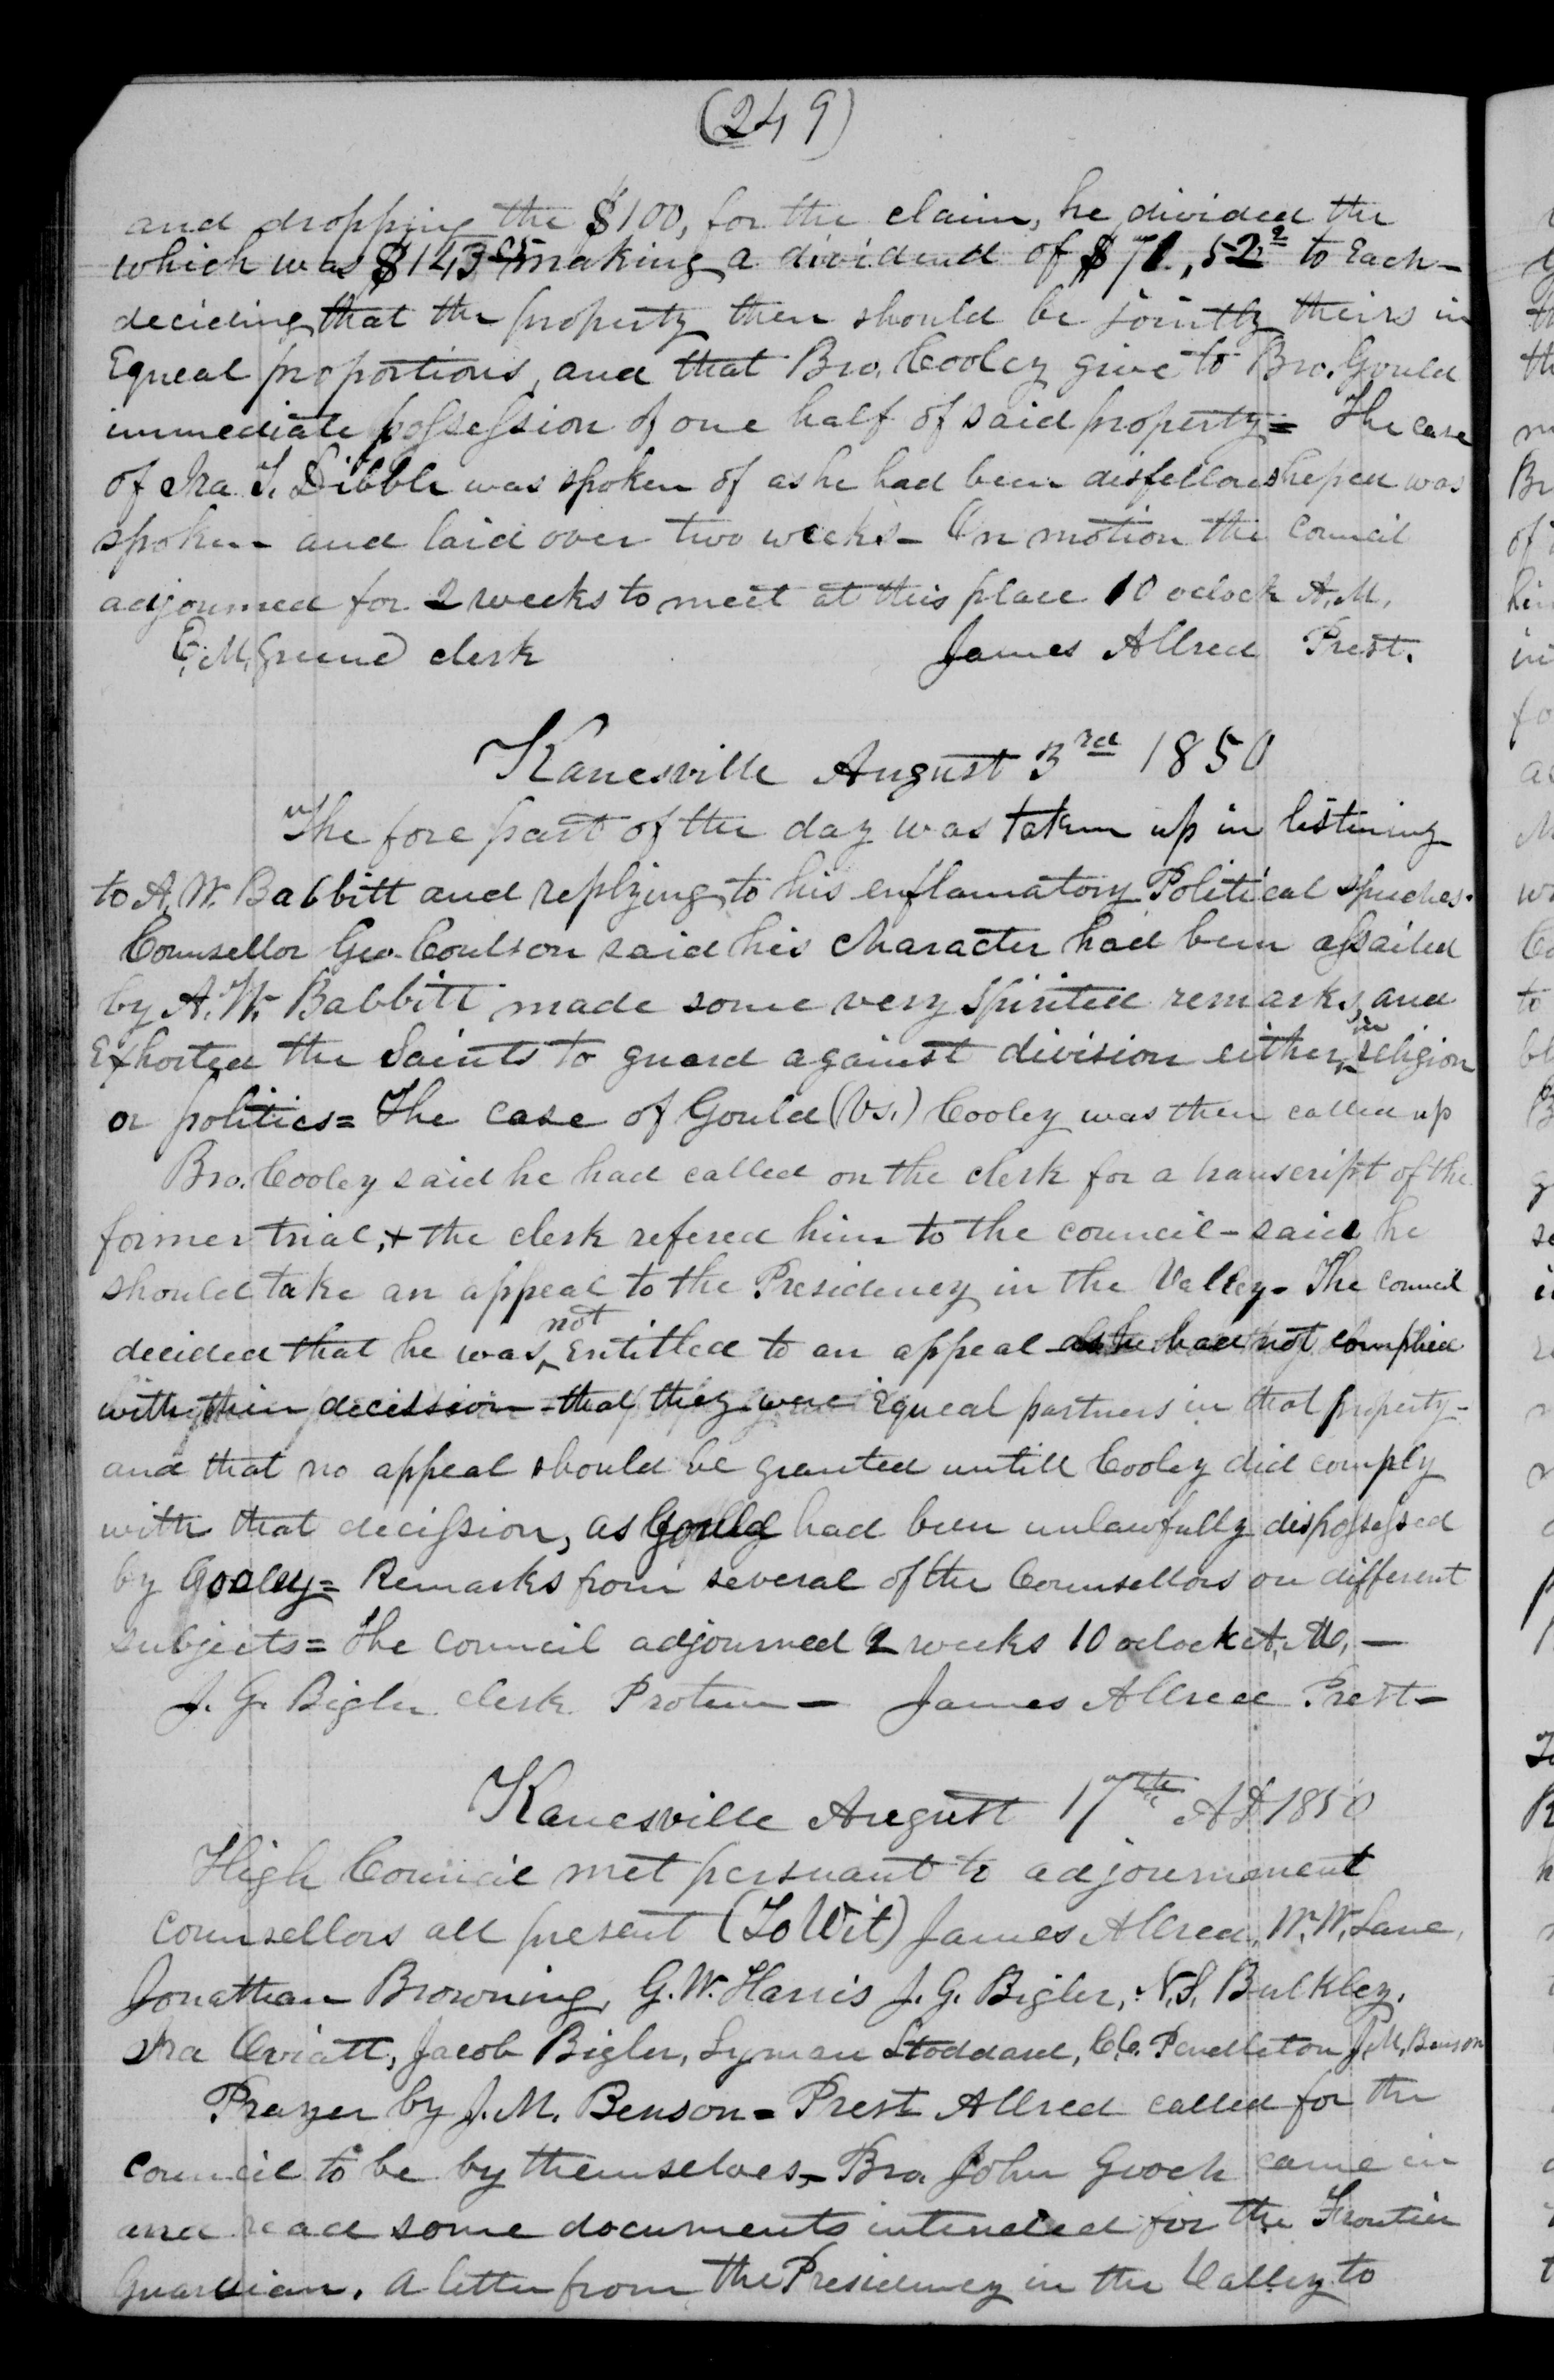 (249)
and dropping the $100, for the claim, he divided the
which was $143 05 making a dividend of $71,52 2 to Each -
deciding that the property then should be jointly theirs in
Equeal proportions, and that Bro. Cooley give to Bro. Gould
immediate possession of one half of said property = The case
of Ira T. Dibble was spoken of as he had been disfellowshiped was
spoken - and laid over two weeks - On motion the Council
adjourned for 2 weeks to meet at this place 10 oclock A.M.
E. M. Greene clerk James Allred Prest.
Kanesville August 3rd 1850
The fore part of the day was taken up in listining
to A. W. Babbitt and replying to his enflamatory Political Speeches.
Counsellor Geo. Coulson said his character had been assailed
by A. W. Babbitt made some very Spirited remarks, and
Exhorted the Saints to guard against division either in religion
or politics = The case of Gould (Vs.) Cooley was then called up
Bro. Cooley said he had called on the clerk for a transcript of the
former trial, + the clerk refered him to the council - said he
should take an appeal to the Presidency in the Valley - The Council
decided that he was not Entitled to an appeal as he had not complied
with their decission - that they were Equeal partners in that property -
and that no appeal should be granted untill Cooley did comply
with that decission, as Gould had been unlawfully dispossessed
by Cooley = Remarks from several of the Counsellors on different
subjects = The council adjourned 2 weeks 10 oclock A. M. -
J. G. Bigler Clerk Protem - James Allred Prest -
Kanesville August 17th AD 1850
High Council met persuant to adjournment
Counsellors all present (To Wit) James Allred, W. W. Lane,
Jonathan Browning, G. W. Harris J. G. Bigler, N. S. Bulkley,
Ira Oviatt, Jacob Bigler, Lyman Stoddard, C. C. Pendleton J. M. Benson
Prayer by J. M. Benson = Prest Allred called for the
Council to be by themselves - Bro. John Gooch came in
and read some documents intended for the Frontier
Guardian. A letter from the Presidency in the Valley to